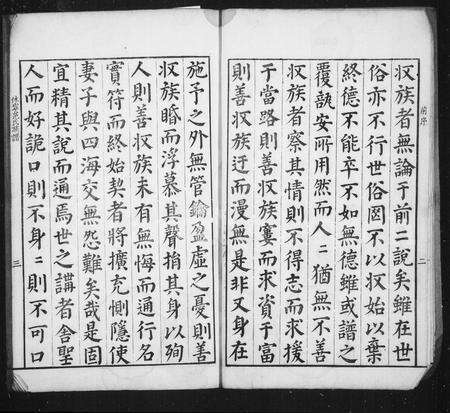 前序
二
収族者無論于前二說矣雖在世
俗亦不行世俗罔不以収始以棄
終德不能卒不如無德雖或譜之
覆孰安所用然而人二猶無不善
収族者察其情則不得志而求援
于當路則善収族窶而求資于富
則善収族迂而漫無是非又身在
施予之外無管鑰盈虛之憂則善
収族婚而浮慕其聲捐其身以殉
人則善収族未有無悔而通行名
實符而終始契者將擴充惻隱使
妻子與四海交無怨難矣哉是固
宜精其說而通焉世之講者舍聖
人而好詭口則不身二則不可口
三